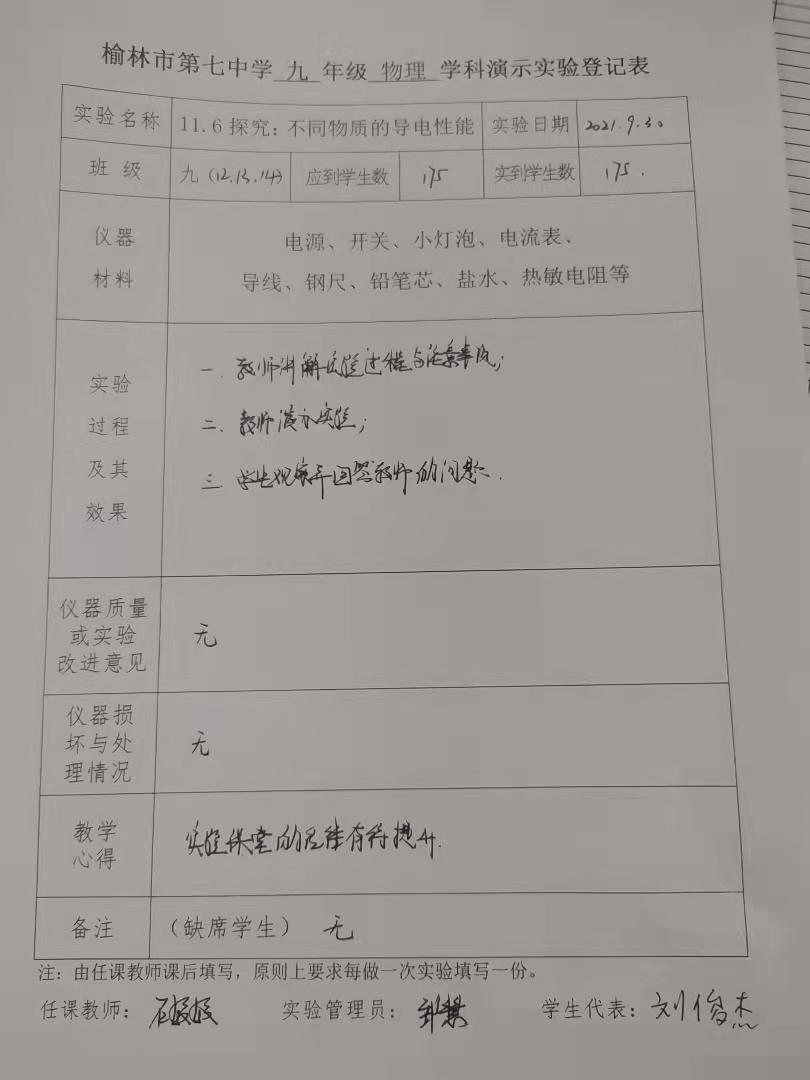 榆林市第七中学 九 年级 物理 学科演示实验登记表
实验名称 11.6 探究：不同物质的导电性能 实验日期 2021.9.30
班 级 九（12.13.14） 应到学生数 175 实到学生数 175.
仪器
材料
电源、开关、小灯泡、电流表、
导线、钢尺、铅笔芯、盐水、热敏电阻等
实验
过程
及其
效果
一. 教师讲解实验过程与注意事项；
二、教师演示实验；
三. 学生观察并回答教师的问题.
仪器质量
或实验
改进意见
无
仪器损
坏与处
理情况
无
教学
心得
实验课堂的纪律有待提升.
备注 （缺席学生） 无
注：由任课教师课后填写，原则上要求每做一次实验填写一份。
任课教师： 实验管理员： 学生代表：刘俊杰